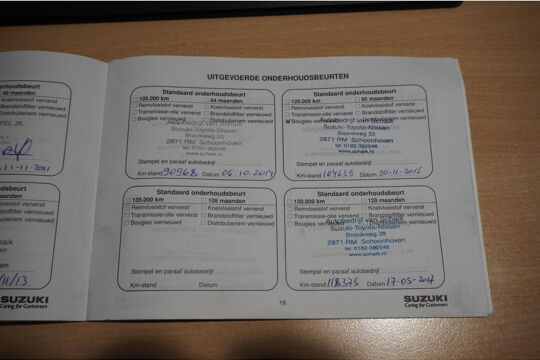 onderhoudsbeurt
48 maanden
Koelvloeistof ververst
Brandstoffilter vernieuwd
Distributieriem vernieuwd
11-11-2011
11/13
SUZUKI
Caring for Customers
UITGEVOERDE ONDERHOUDSBEURTEN
Standaard onderhoudsbeurt
105.000 km 84 maanden
Remvloeistof ververst Koelvloeistof ververst
Transmissie-olie ververst Brandstoffilter vernieuwd
Bougies vernieuwd Distributieriem vernieuwd
Autobedrijf van Schaik
Suzuki-Toyota-Nissan
Broeikweg 33
2871 RM Schoonhoven
tel. 0182-382546
www.schaik.nl
Stempel en paraaf autobedrijf
Km-stand 90968 Datum 06.10.2014
Standaard onderhoudsbeurt
120.000 km 96 maanden
Remvloeistof ververst Koelvloeistof ververst
Transmissie-olie ververst Brandstoffilter vernieuwd
Bougies vernieuwd Distributieriem vernieuwd
Autobedrijf van Schaik
Suzuki-Toyota-Nissan
Broeikweg 33
2871 RM Schoonhoven
tel. 0182-382546
www.schaik.nl
Stempel en paraaf autobedrijf
Km-stand 104639 Datum 30-11-2015
Standaard onderhoudsbeurt
135.000 km 108 maanden
Remvloeistof ververst Koelvloeistof ververst
Transmissie-olie ververst Brandstoffilter vernieuwd
Bougies vernieuwd Distributieriem vernieuwd
Stempel en paraaf autobedrijf
Km-stand Datum
Standaard onderhoudsbeurt
150.000 km 120 maanden
Remvloeistof ververst Koelvloeistof ververst
Transmissie-olie ververst Brandstoffilter vernieuwd
Bougies vernieuwd Distributieriem vernieuwd
Autobedrijf van Schaik
Suzuki-Toyota-Nissan
Broeikweg 33
2871 RM Schoonhoven
tel. 0182-382546
www.schaik.nl
Stempel en paraaf autobedrijf
Km-stand 118375 Datum 17-05-2017
15
SUZUKI
Caring for Customers